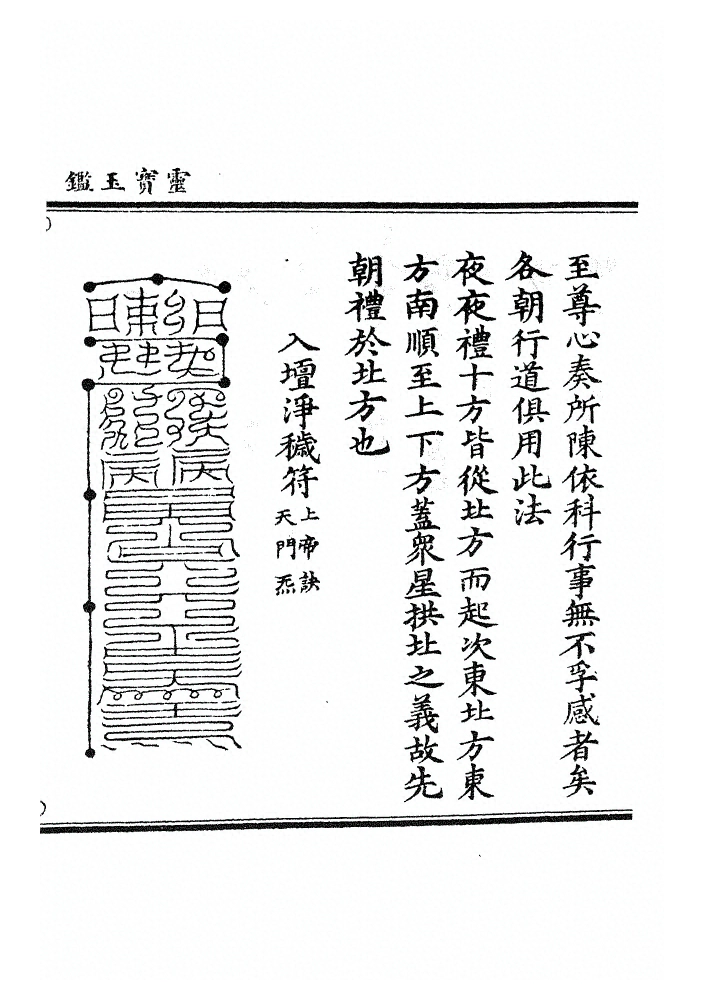 靈寶玉鑑
至尊心奏所陳依科行事無不孚感者矣
各朝行道俱用此法
夜夜禮十方皆從北方而起次東北方東
方南順至上下方蓋衆星拱北之義故先
朝禮於北方也
入壇淨穢符
上帝訣
天門炁